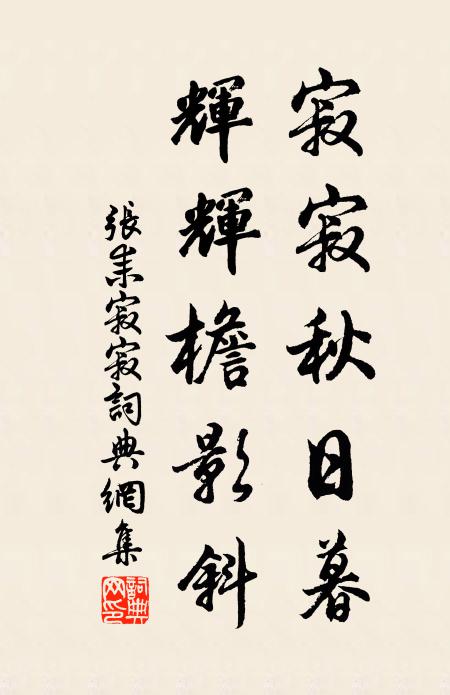 寂寂秋日暮
輝輝檐影斜
張耒寂寂詞典網集
詞典網印